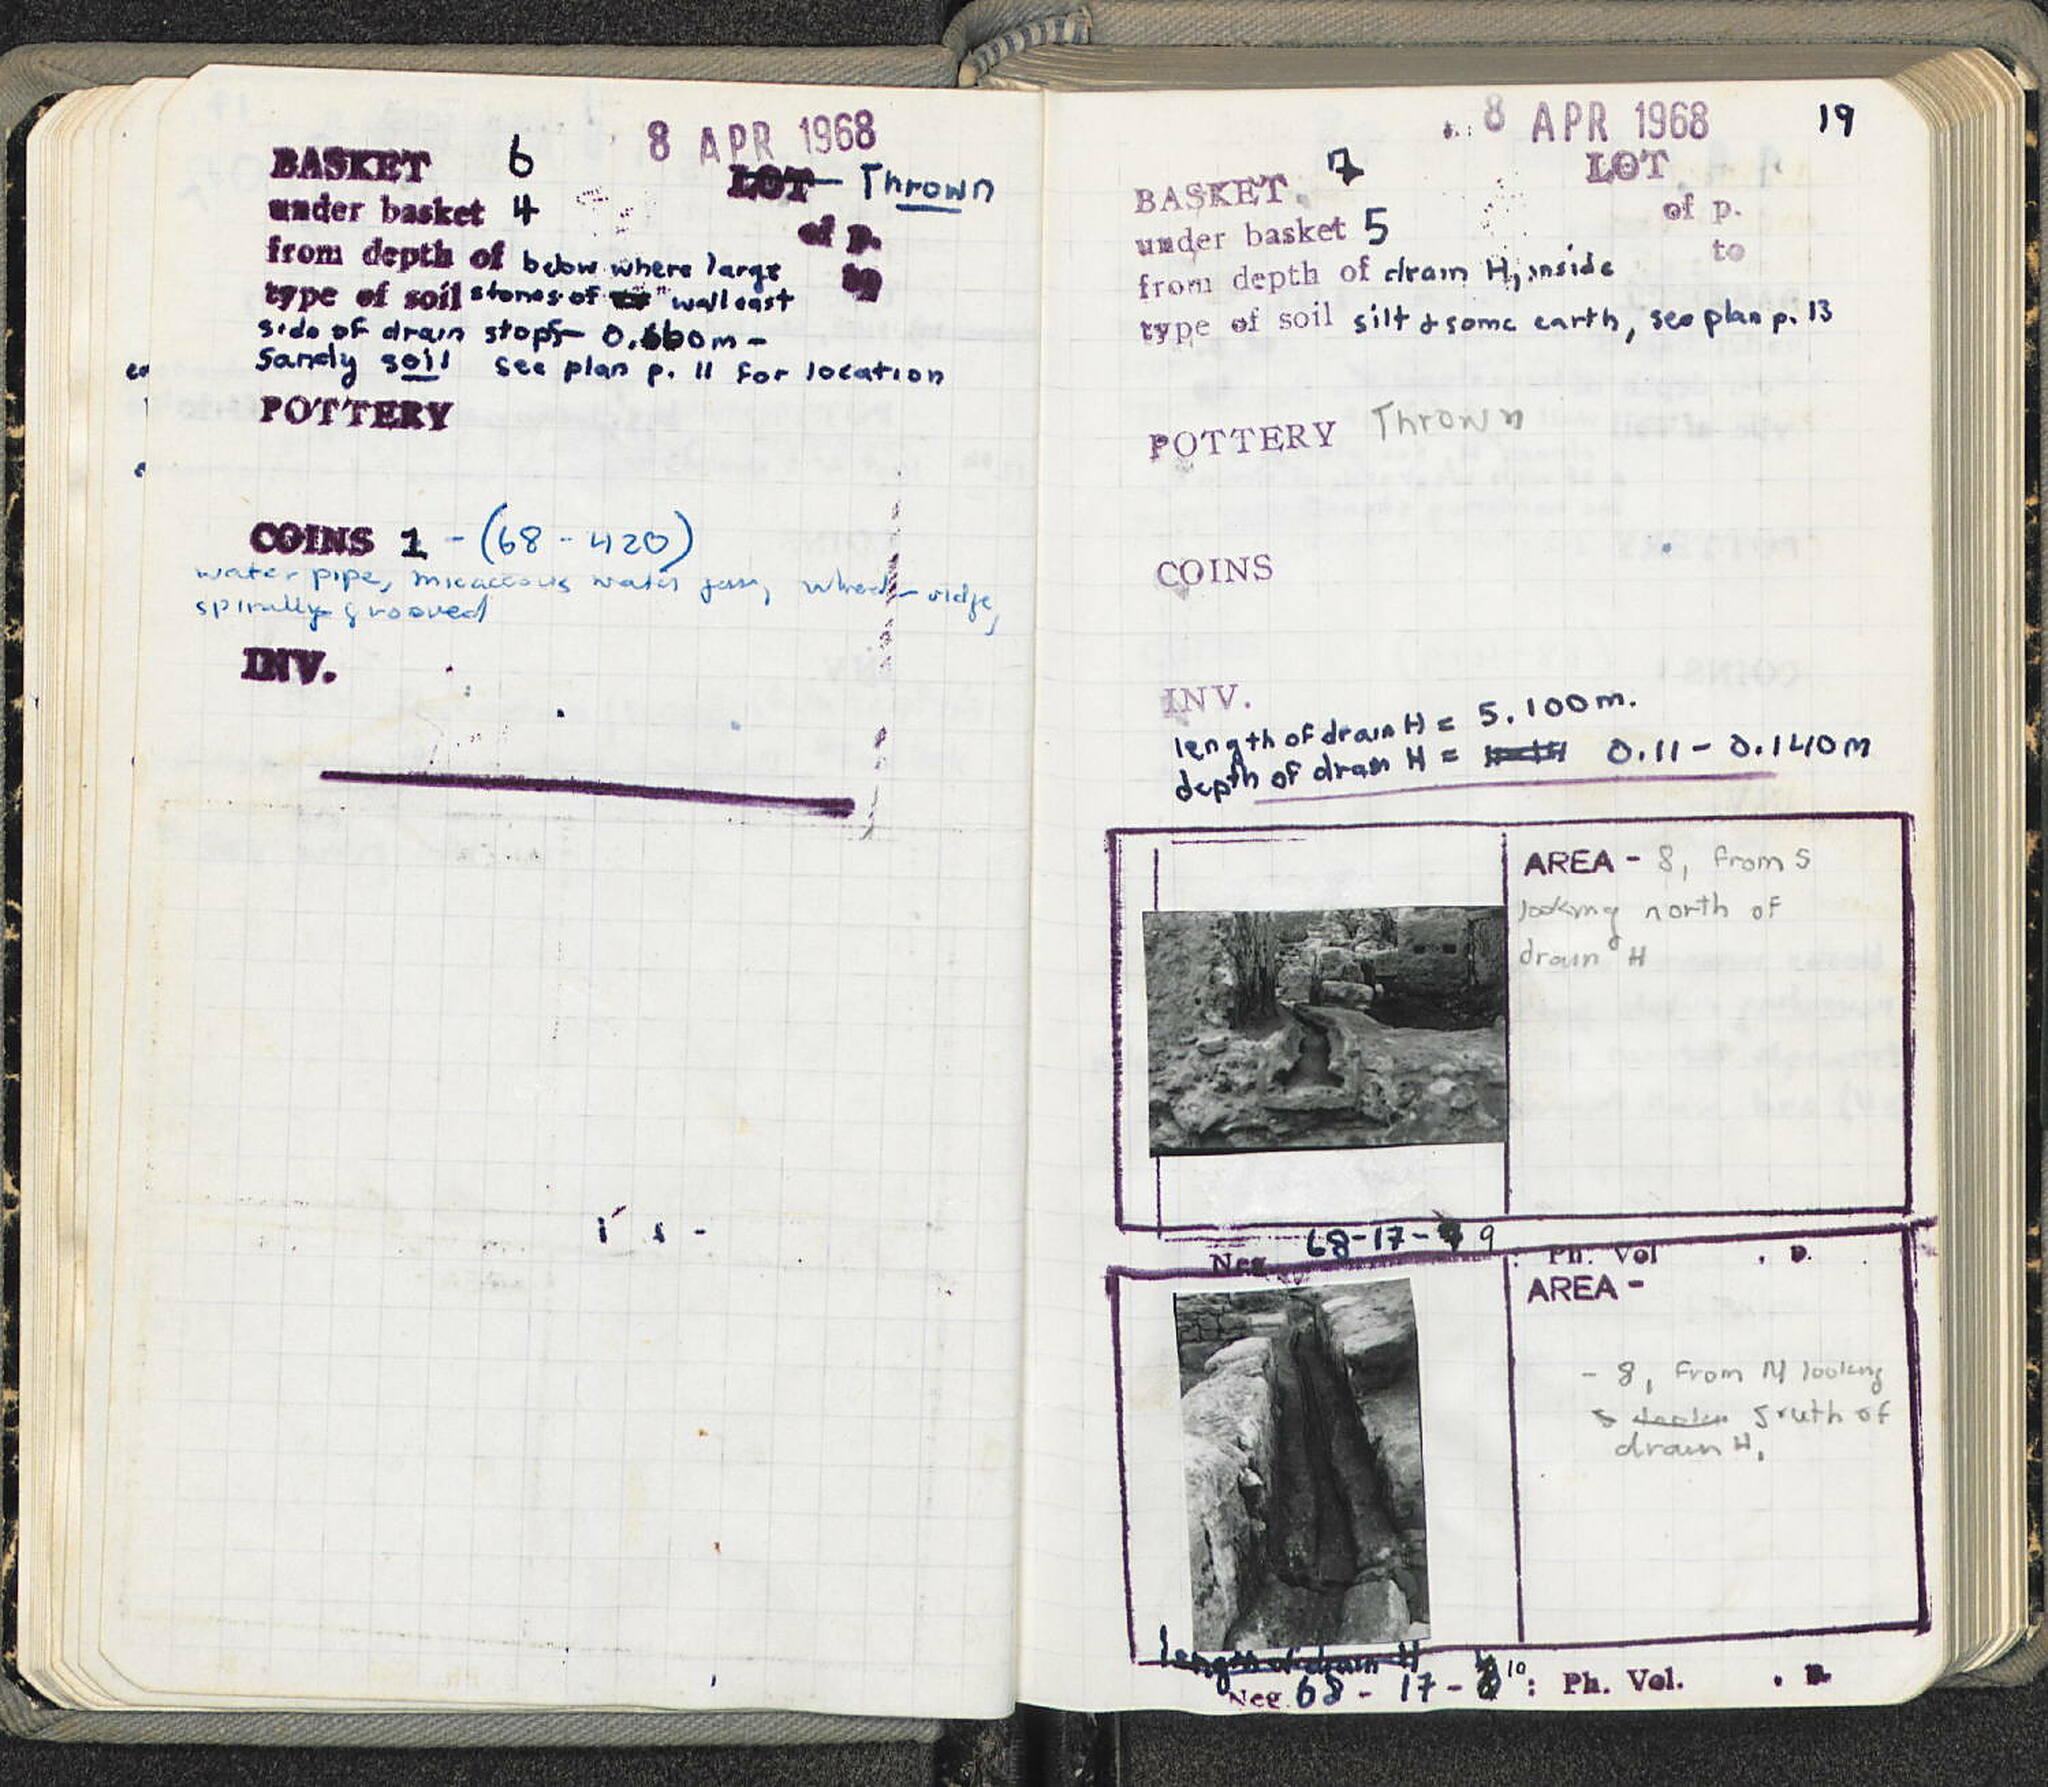 8 APR 1968
BASKET 6
LOT Thrown
under basket 4
of p.
from depth of below where large
to
type of soil stones of " wall east
side of drain stops - 0.660m -
Sandy soil see plan p. 11 for location
POTTERY
COINS 1 - (68-420)
water pipe, micaceous water jars, wheel-ridge,
spirally grooved
INV.
8 APR 1968
19
BASKET 7
LOT
under basket 5
of p.
from depth of drain H, inside
to
type of soil silt & some earth, see plan p. 13
POTTERY Thrown
COINS
INV.
length of drain H = 5.100m.
depth of drain H = 0.11 - 0.140m
AREA - 8, from S
looking north of
drain H
68-17-9
Neg. : Ph. Vol . p.
AREA -
- 8, from N looking
South of
drain H,
length of drain H
Neg. 68-17-10 : Ph. Vol. . p.